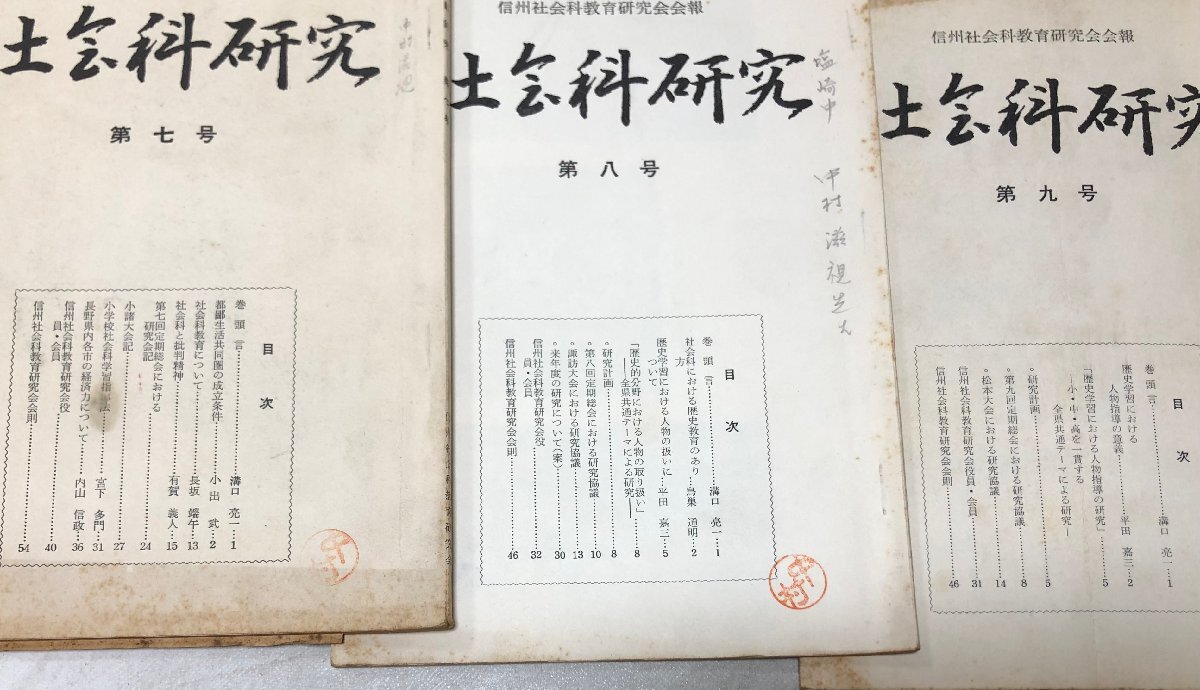 土会科研究
第七号
目次
巻頭言 溝口亮一 1
都鄙生活共同圏の成立条件 小出武 2
社会科教育について 長坂端午 13
社会科と批判精神 有賀義人 15
第七回定期総会における
研究会記 24
小諸大会記 27
小学校社会科学習指導法 宮下多門 31
長野県内各市の経済力について 内山信政 36
信州社会科教育研究会役
員・会員 40
信州社会科教育研究会会則 54
信州社会科教育研究会会報
土会科研究
第八号
塩崎中
中村
目次
巻頭言 溝口亮一 1
社会科における歴史教育のあり
方 鳥巣通明 2
歴史学習における人物の扱いに
ついて 平田嘉三 5
「歴史的分野における人物の取り扱い」
―全県共通テーマによる研究― 8
◦研究計画 8
◦第八回定期総会における研究協議 10
◦諏訪大会における研究協議 13
◦来年度の研究について(案) 30
信州社会科教育研究会役
員・会員 32
信州社会科教育研究会会則 46
中村
信州社会科教育研究会会報
土会科研究
第九号
目次
巻頭言 溝口亮一 1
歴史学習における
人物指導の意義 平田嘉三 2
「歴史学習における人物指導の研究」 5
―小・中・高を一貫する
全県共通テーマによる研究―
◦研究計画 5
◦第九回定期総会における研究協議 8
◦松本大会における研究協議 14
信州社会科教育研究会役員・会員 31
信州社会科教育研究会会則 46